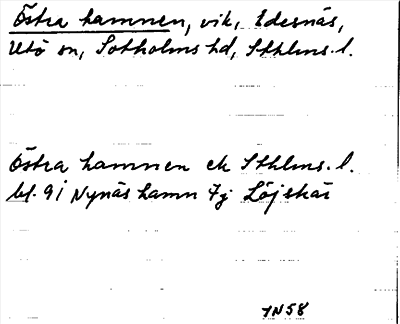 Östra hamnen, vik, Edesnäs,
Utö sn, Sotholms hd, Sthlms. l.
Östra hamnen ek Sthlms. l.
bl. 91 Nynäshamn 7j Löjskär
IN58